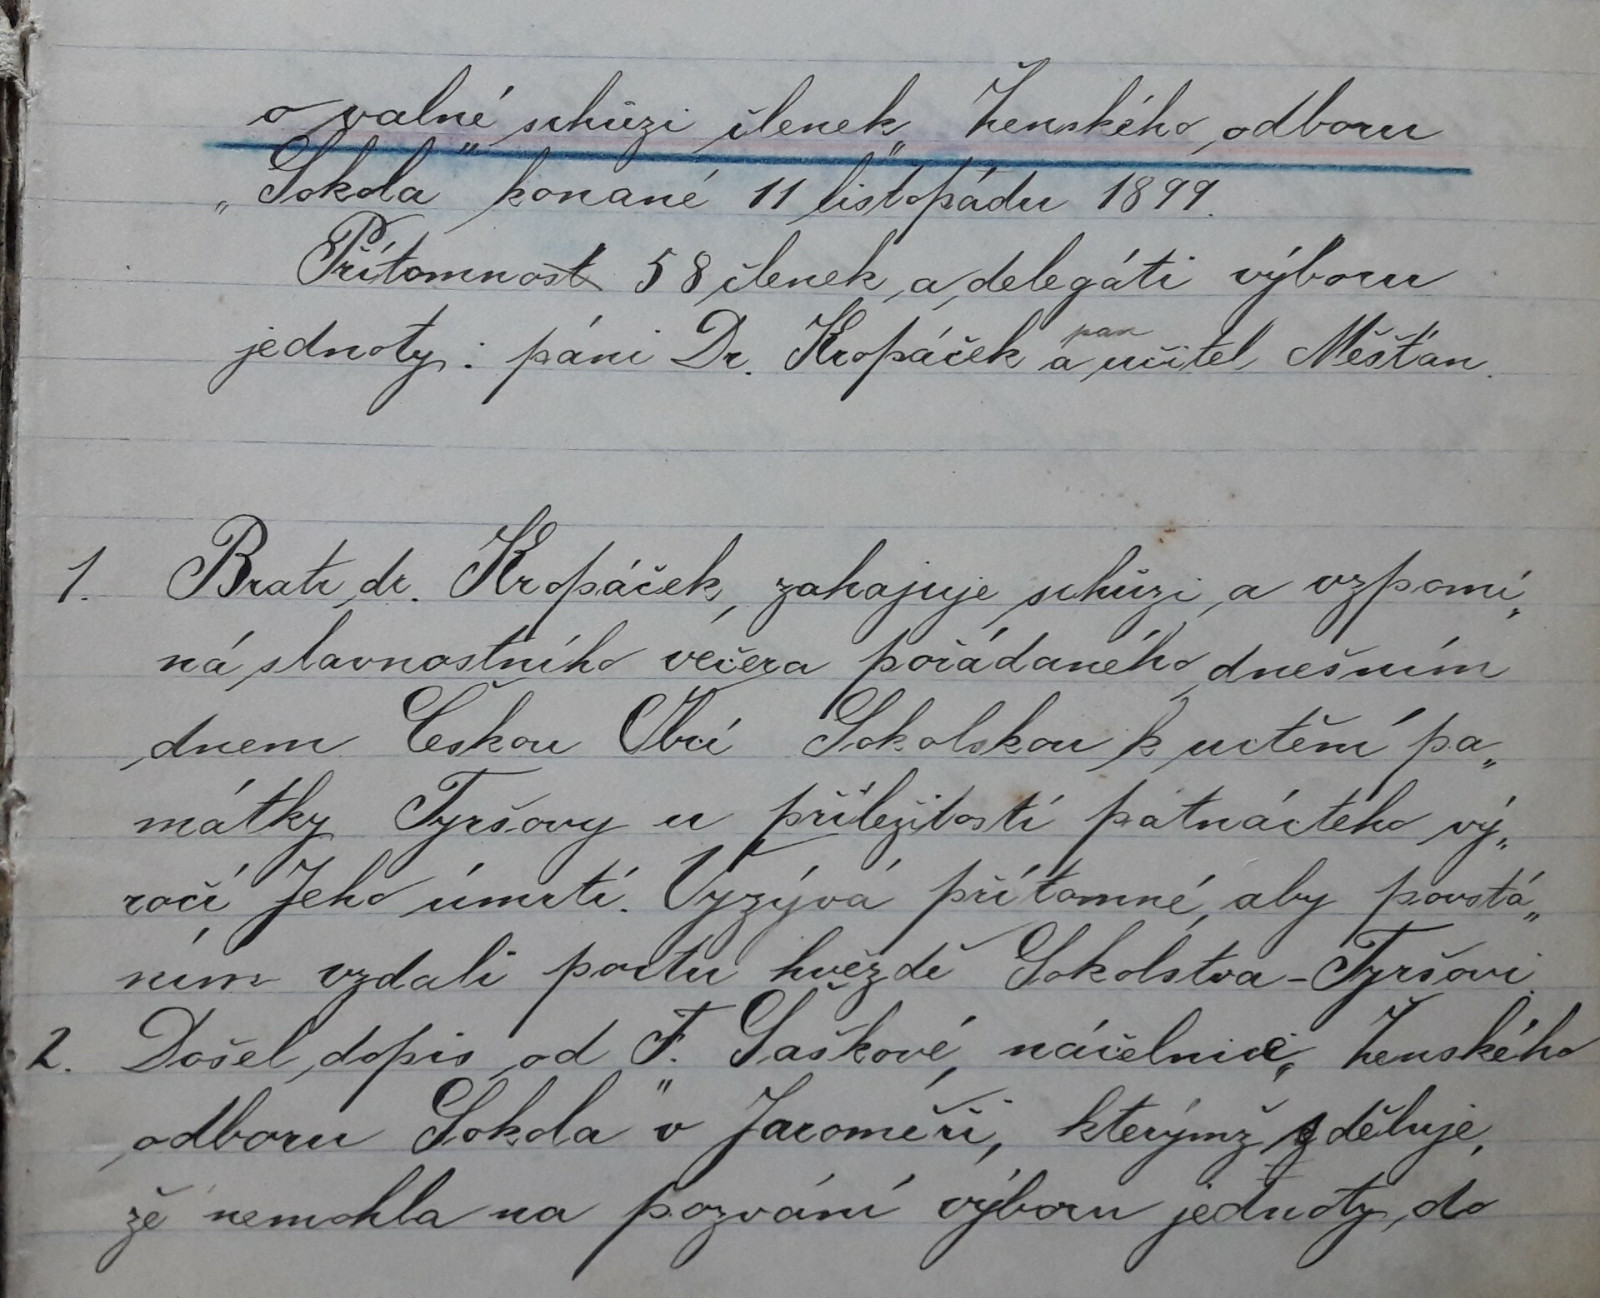 o valné schůzi členek „Ženského odboru
„Sokola" konané 11 listopádu 1899.
Přítomnost 58 členek a delegáti výboru
jednoty: páni Dr. Kropáček a pan učitel Měšťan.
1. Bratr dr. Kropáček, zahajuje schůzi a vzpomí„
ná slavnostního večera pořádaného dnešním
dnem Českou Obcí Sokolskou k uctění pa„
mátky Tyršovy u příležitosti patnáctého vý„
ročí Jeho úmrtí. Vyzývá přítomné, aby povstá„
ním vzdali poctu hvězdě Sokolstva - Tyršovi.
2. Došel dopis od F. Saškové, náčelnice „Ženského
odboru Sokola" v Jaroměři, kterýmž sděluje,
že nemohla na pozvání výboru jednoty do